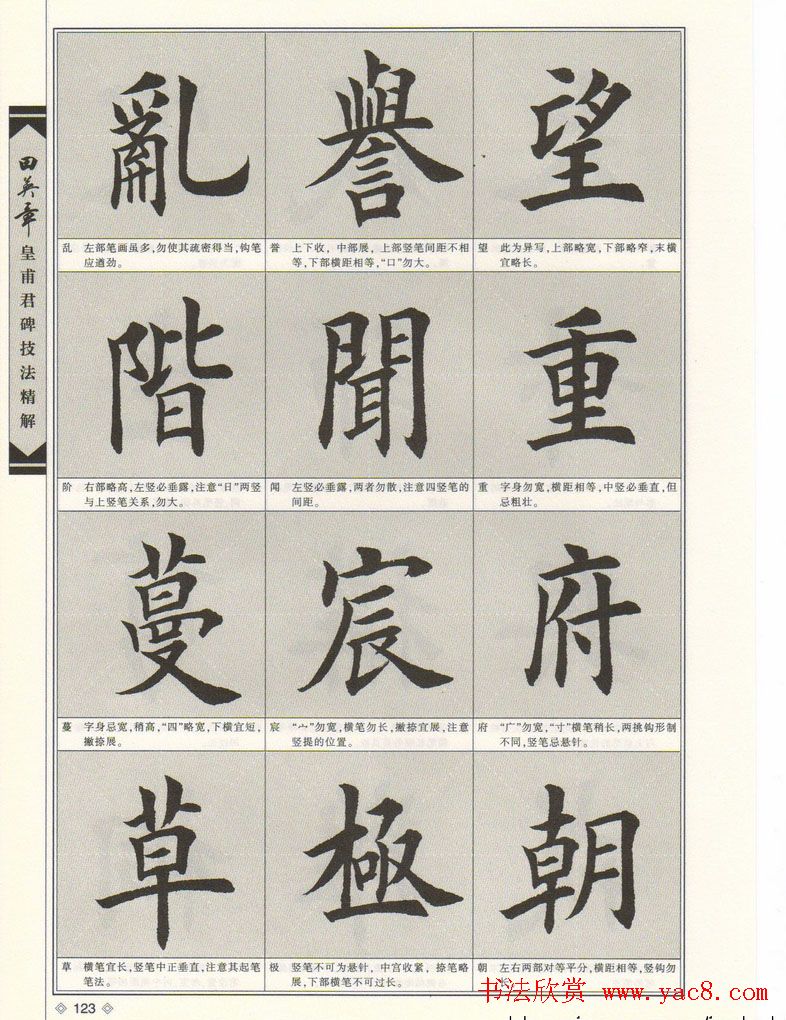 田英章
皇甫君碑技法精解
亂
譽
望
乱 左部笔画虽多,勿使其疏密得当,钩笔
应遒劲。
誉 上下收，中部展，上部竖笔间距不相
等,下部横距相等,“口”勿大。
望 此为异写,上部略宽,下部略窄,末横
宜略长。
階
聞
重
阶 右部略高,左竖必垂露,注意“日”两竖
与上竖笔关系,勿大。
闻 左竖必垂露,两者勿散,注意四竖笔的
间距。
重 字身勿宽,横距相等,中竖必垂直,但
忌粗壮。
蔓
宸
府
蔓 字身忌宽,稍高,“四”略宽,下横宜短,
撇捺展。
宸 “宀”勿宽,横笔勿长,撇捺宜展,注意
竖提的位置。
府 “广”勿宽,“寸”横笔稍长,两挑钩形制
不同,竖笔忌悬针。
草
極
朝
草 横笔宜长,竖笔中正垂直,注意其起笔
笔法。
极 竖笔不可为悬针，中宫收紧，捺笔略
展,下部横笔不可过长。
朝 左右两部对等平分,横距相等,竖钩勿
123
书法欣赏 www.yac8.com